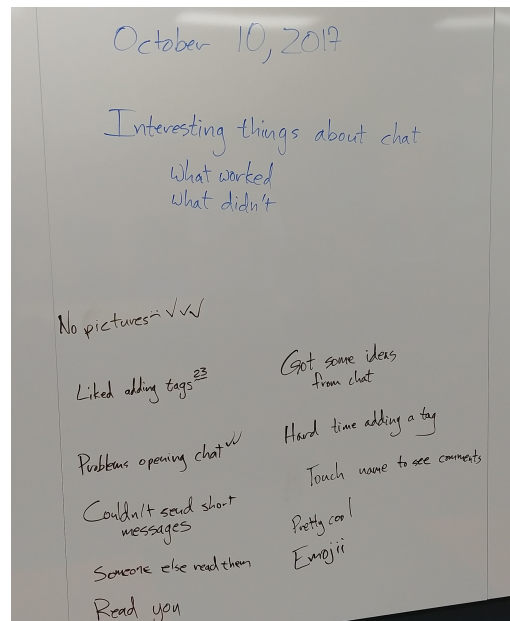 October 10, 2017
Interesting things about chat
What worked
What didn't
No pictures :( ✓✓✓
Liked adding tags 23
Problems opening chat ✓✓
Couldn't send short
messages
Someone else read them
Read you
Got some ideas
from chat
Hard time adding a tag
Touch name to see comments
Pretty cool
Emojii